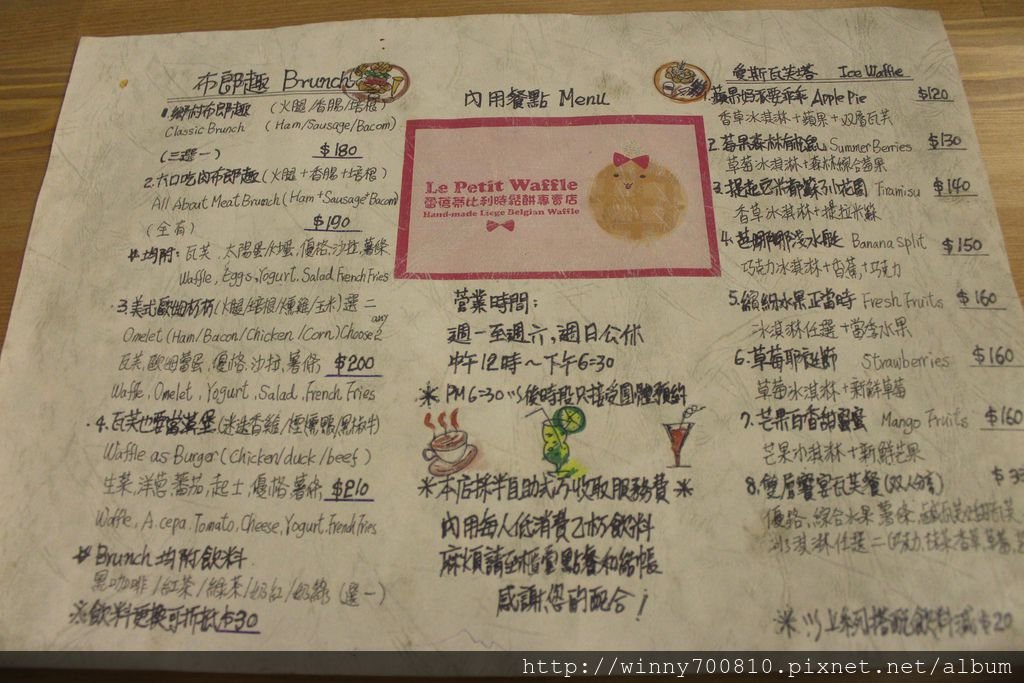 布郎趣 Brunch
1.鄉村布郎趣 (火腿/香腸/培根)
Classic Brunch (Ham/Sausage/Bacon)
(三選一) $180
2.大口吃肉布郎趣 (火腿+香腸+培根)
All About Meat Brunch (Ham+Sausage+Bacon)
(全有) $190
#均附:瓦芙.太陽蛋/炒蛋.優格.沙拉.薯條
Waffle, Eggs, Yogurt. Salad. French Fries
3.美式歐姆杯杯 (火腿/培根/燻雞/玉米)選二
Omelet (Ham/Bacon/Chicken/Corn) Choose any 2
瓦芙.歐姆蕾蛋.優格.沙拉.薯條 $200
Waffle, Omelet, Yogurt, Salad, French Fries
4.瓦芙也要當漢堡 (迷迭香雞/煙燻鴨/黑椒牛)
Waffle as Burger (chicken/duck/beef)
生菜.洋蔥.蕃茄.起士.優格.薯條 $210
Waffle, A.cepa, Tomato, Cheese, Yogurt, French Fries
# Brunch 均附飲料
黑咖啡/紅茶/綠茶/奶紅/奶綠 (選一)
※飲料更換可折抵$30
內用餐點 Menu
Le Petit Waffle
比利時鬆餅專賣店
Hand-made Liege Belgian Waffle
營業時間:
週一至週六,週日公休
中午12時~下午6:30
※ PM 6:30 以後時段只接受團體預約
※本店採半自助式不收取服務費※
內用每人低消費乙杯飲料
麻煩請至櫃臺點餐和結帳
感謝您的配合!
愛斯瓦芙塔 Ice Waffle
1.蘋果妈不要乖乖 Apple Pie $120
香草冰淇淋+蘋果+双層瓦芙
2.莓果森林 Summer Berries $130
草莓冰淇淋+森林綜合莓果
3.提起 Tiramisu $140
香草冰淇淋+提拉米蘇
4.芭娜娜淺水艇 Banana Split $150
巧克力冰淇淋+香蕉+巧克力
5.繽紛水果正當時 Fresh Fruits $160
冰淇淋任選+當季水果
6.草莓耶誕節 Strawberries $160
草莓冰淇淋+新鮮草莓
7.芒果百香甜蜜蜜 Mango Fruits $160
芒果冰淇淋+新鮮芒果
8.雙層饗宴瓦芙餐(双人份)
優格.綜合水果.薯條
冰淇淋任選二
※以上系列搭配飲料減$20
http://winny700810.pixnet.net/album